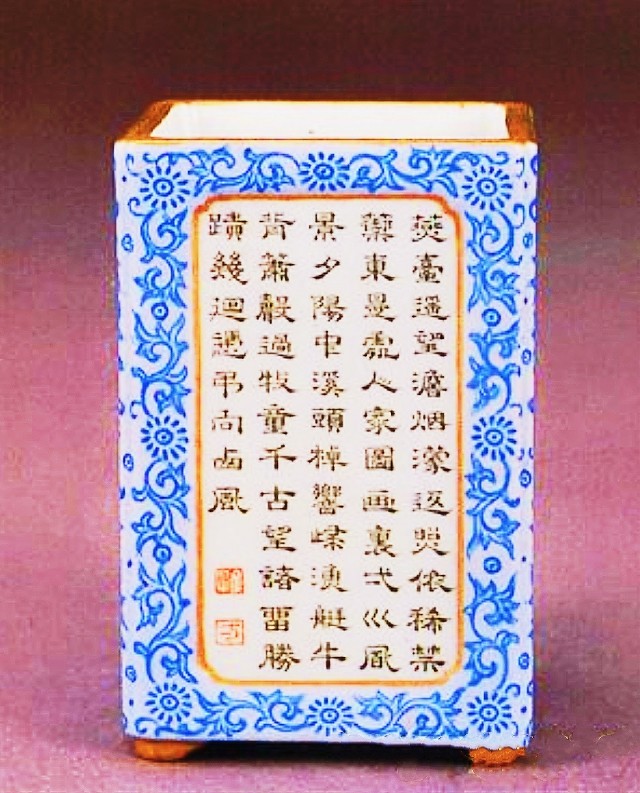 燕臺遥望澹烟濛返照依稀禁
籞東是處人家圖画裏弌巛風
景夕陽中溪頭棹響漁艇牛
背簫聲過牧童千古望諸留勝
蹟幾迴憑弔向西風